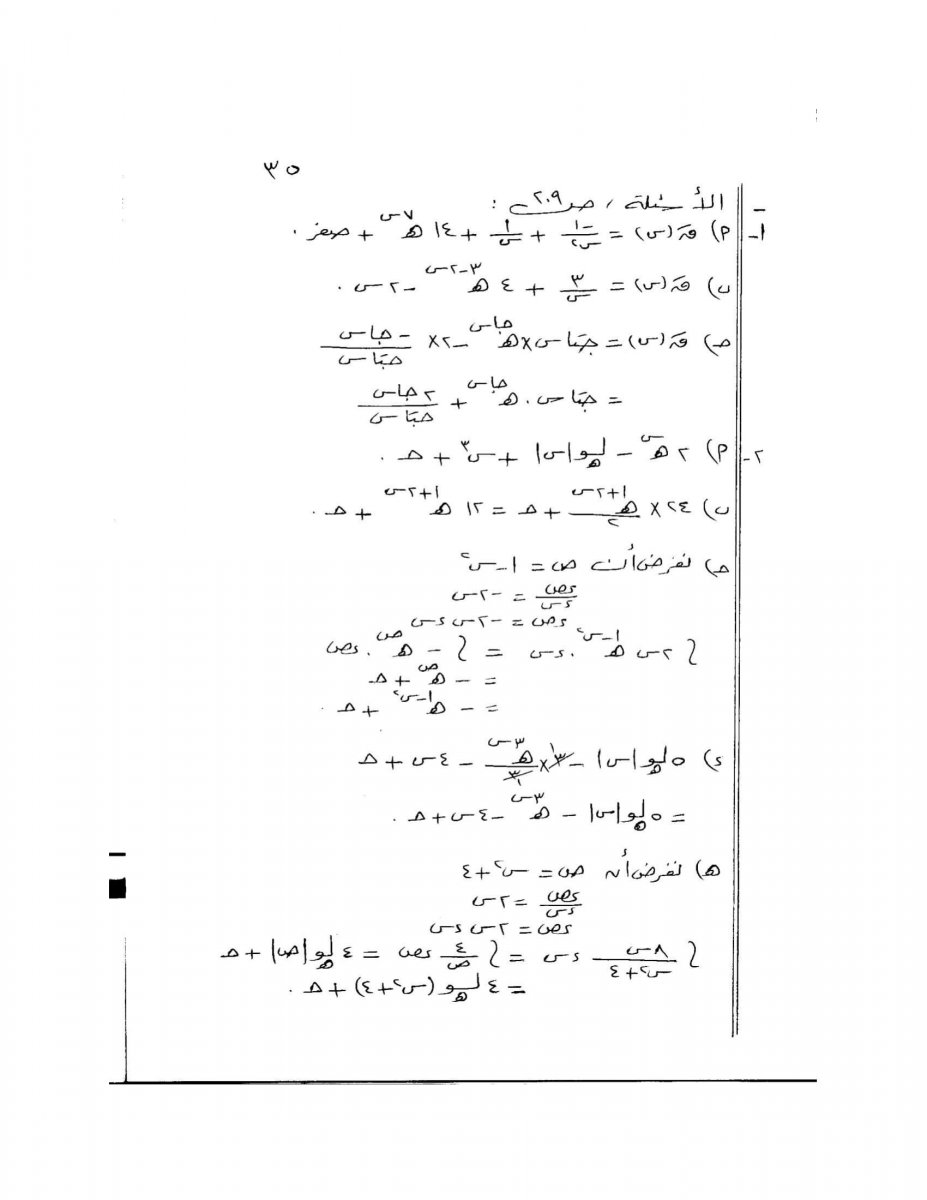 ٣٥
الأسئلة ، ص٢٠٩ :
١- أ) قَ(س) = -١/س٢ + ١/س + ١٤ هـ^٧س + صفر .
ب) قَ(س) = ٣/س + ٤ هـ^٣-٢س - ٢س .
جـ) قَ(س) = جتاس × هـ^جاس - ٢ × -جاس/جتاس
= جتاس . هـ^جاس + ٢جاس/جتاس
٢- أ) ٢هـ^س - لو هـ |س| + س^٣ + جـ .
ب) ٢٤ × هـ^١+٢س/٢ + جـ = ١٢ هـ^١+٢س + جـ .
جـ) نفرض أن ص = ١ - س^٢
ءص/ءس = -٢س
ءص = -٢س ءس
∫ ٢س هـ^١-س^٢ . ءس = ∫ - هـ^ص . ءص
= - هـ^ص + جـ
= - هـ^١-س^٢ + جـ .
ء) ٥ لو هـ |س| - ٣ × هـ^٣س/٣ - ٤س + جـ
= ٥ لو هـ |س| - هـ^٣س - ٤س + جـ .
هـ) نفرض أن ص = س^٢ + ٤
ءص/ءس = ٢س
ءص = ٢س ءس
∫ ٨س/س^٢+٤ ءس = ∫ ٤/ص ءص = ٤ لو هـ |ص| + جـ
= ٤ لو هـ (س^٢+٤) + جـ .